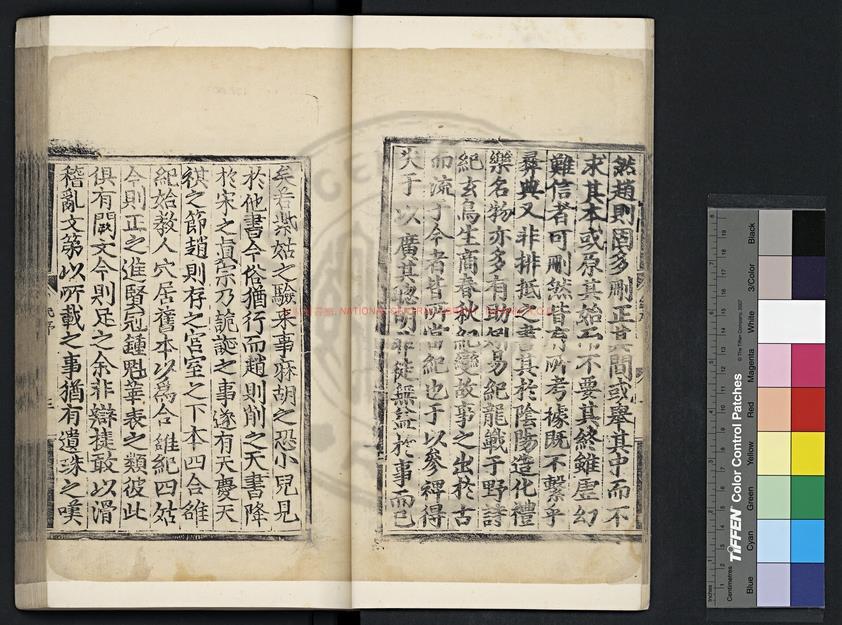 然趙則固多刪正其間或舉其中而不
求其本或原其始而不要其終雖虛幻
難信者可刪然皆有所考據既不繫乎
彝典又非排抵書其於陰陽造化禮
樂名物亦多有易紀龍戰于野詩
紀玄鳥生商春秋紀變故事之出於古
而流于今者皆當紀也于以參稗得
失于以廣其聰明非徒無益於事而已
矣若紫姑之驗東事麻胡之恐小兒見
於他書今俗猶行而趙則削之天書降
於宋之真宗乃詭誕之事遂有天慶天
祺之節趙則存之宮室之下本四合雒
紀始教人穴居舊本以為合雒紀四姑
今則正之進賢冠鍾魁華表之類彼此
俱有闕文今則足之余非辯摭敢以滑
稽亂文第以所載之事猶有遺珠之嘆
TIFFEN Color Control Patches
© The Tiffen Company, 2007
Centimetres
Inches
Blue
Cyan
Green
Yellow
Red
Magenta
White
3/Color
Black